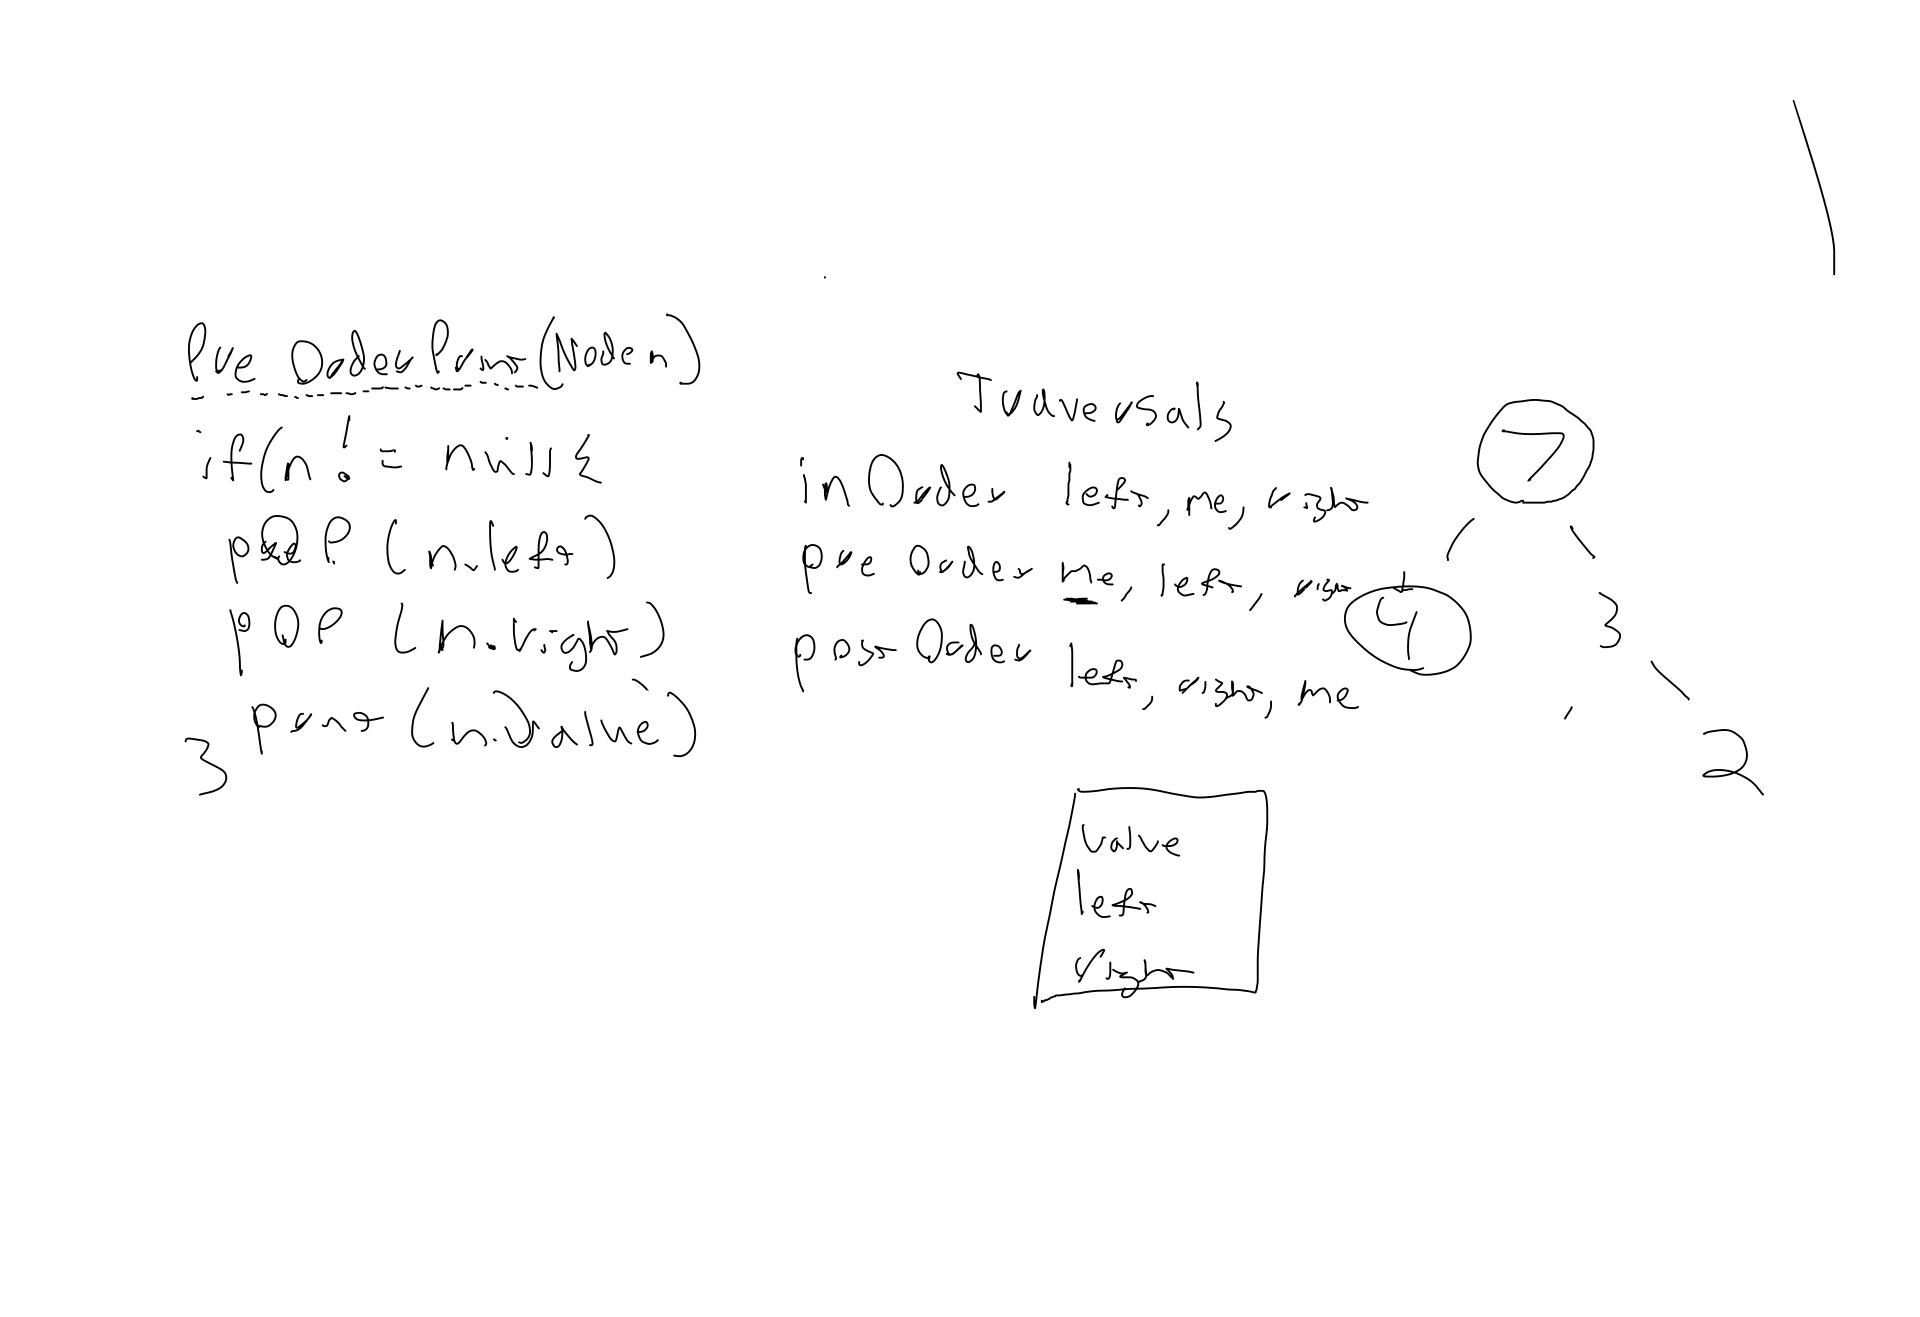 Pre Order Print (Node n)
if(n != null {
pOP (n.left)
pOP (n.right)
print (n.value)
}
Traversals
in Order left, me, right
pre Order me, left, right
post Order left, right, me
7
4 3
2
value
left
right